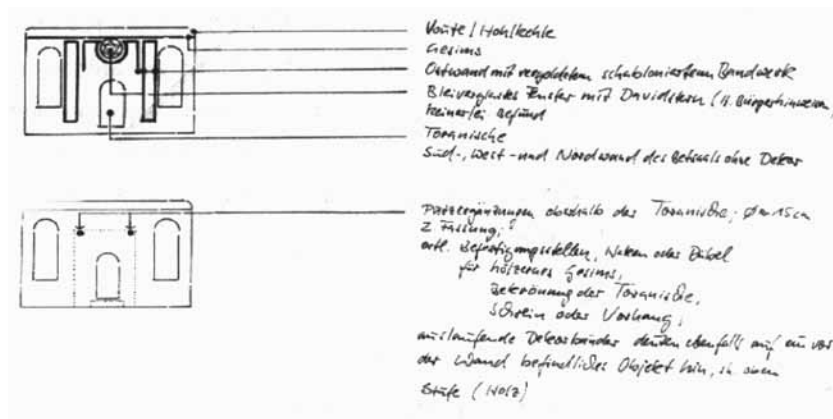 Voute / Hohlkehle
Gesims
Ostwand mit vergoldetem schabloniertem Bandwerk
Bleiverglastes Fenster mit Davidstern (lt. Bürgerhinweisen,
keinerlei Befund
Toranische
Süd-, West- und Nordwand des Betsaals ohne Dekor
Putzergänzungen oberhalb der Toranische; Ø ca 15 cm
2 Fassung;
evtl. Befestigungsstellen, Haken oder Dübel
für hölzernes Gesims,
Bekrönung der Toranische,
Schrein oder Vorhang,
auslaufende Dekorbänder deuten ebenfalls auf ein vor
der Wand befindliches Objekt hin, s. oben
Stufe (Holz)